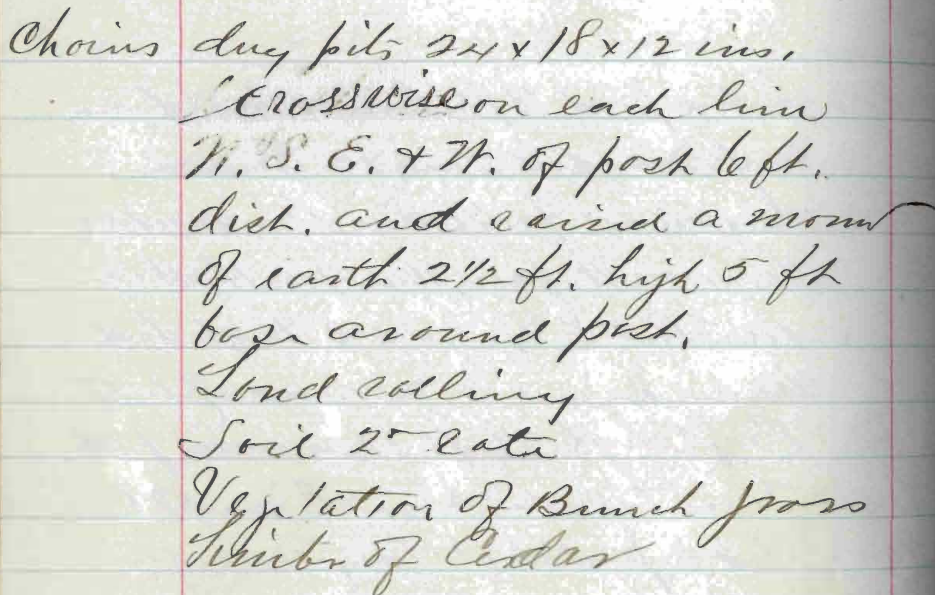 Chains dug pits 24 x 18 x 12 ins.
Crosswise on each line
N. S. E. & W. of post 6 ft.
dist. and raised a mound
of earth 2 1/2 ft. high 5 ft
base around post.
Land rolling
Soil 2 rate
Vegetation of Bunch grass
Timber of Cedar